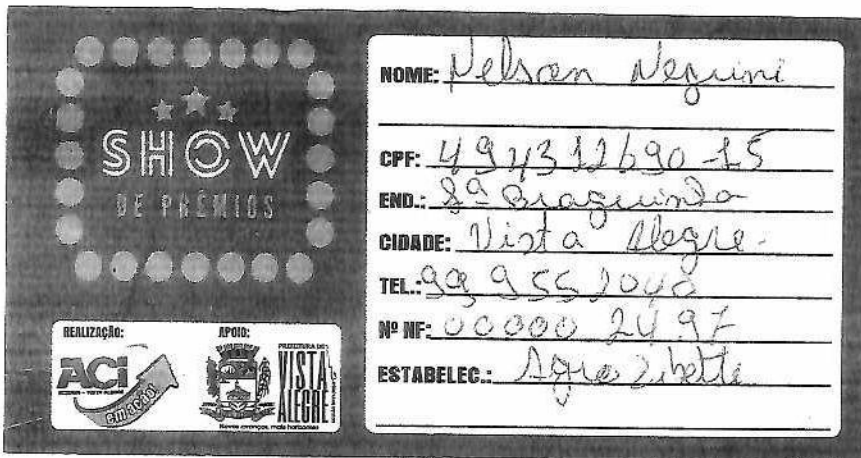 SHOW
DE PRÊMIOS
REALIZAÇÃO:
ACI
em ação!
APOIO:
PREFEITURA DE
VISTA
ALEGRE
Novos avanços, mais horizontes
NOME: Nelson Negrini
CPF: 494312690-15
END.: Sª Braguinha
CIDADE: Vista Alegre
TEL.: 99 955 1040
Nº NF: 00000 2497
ESTABELEC.: Agro Zibetti